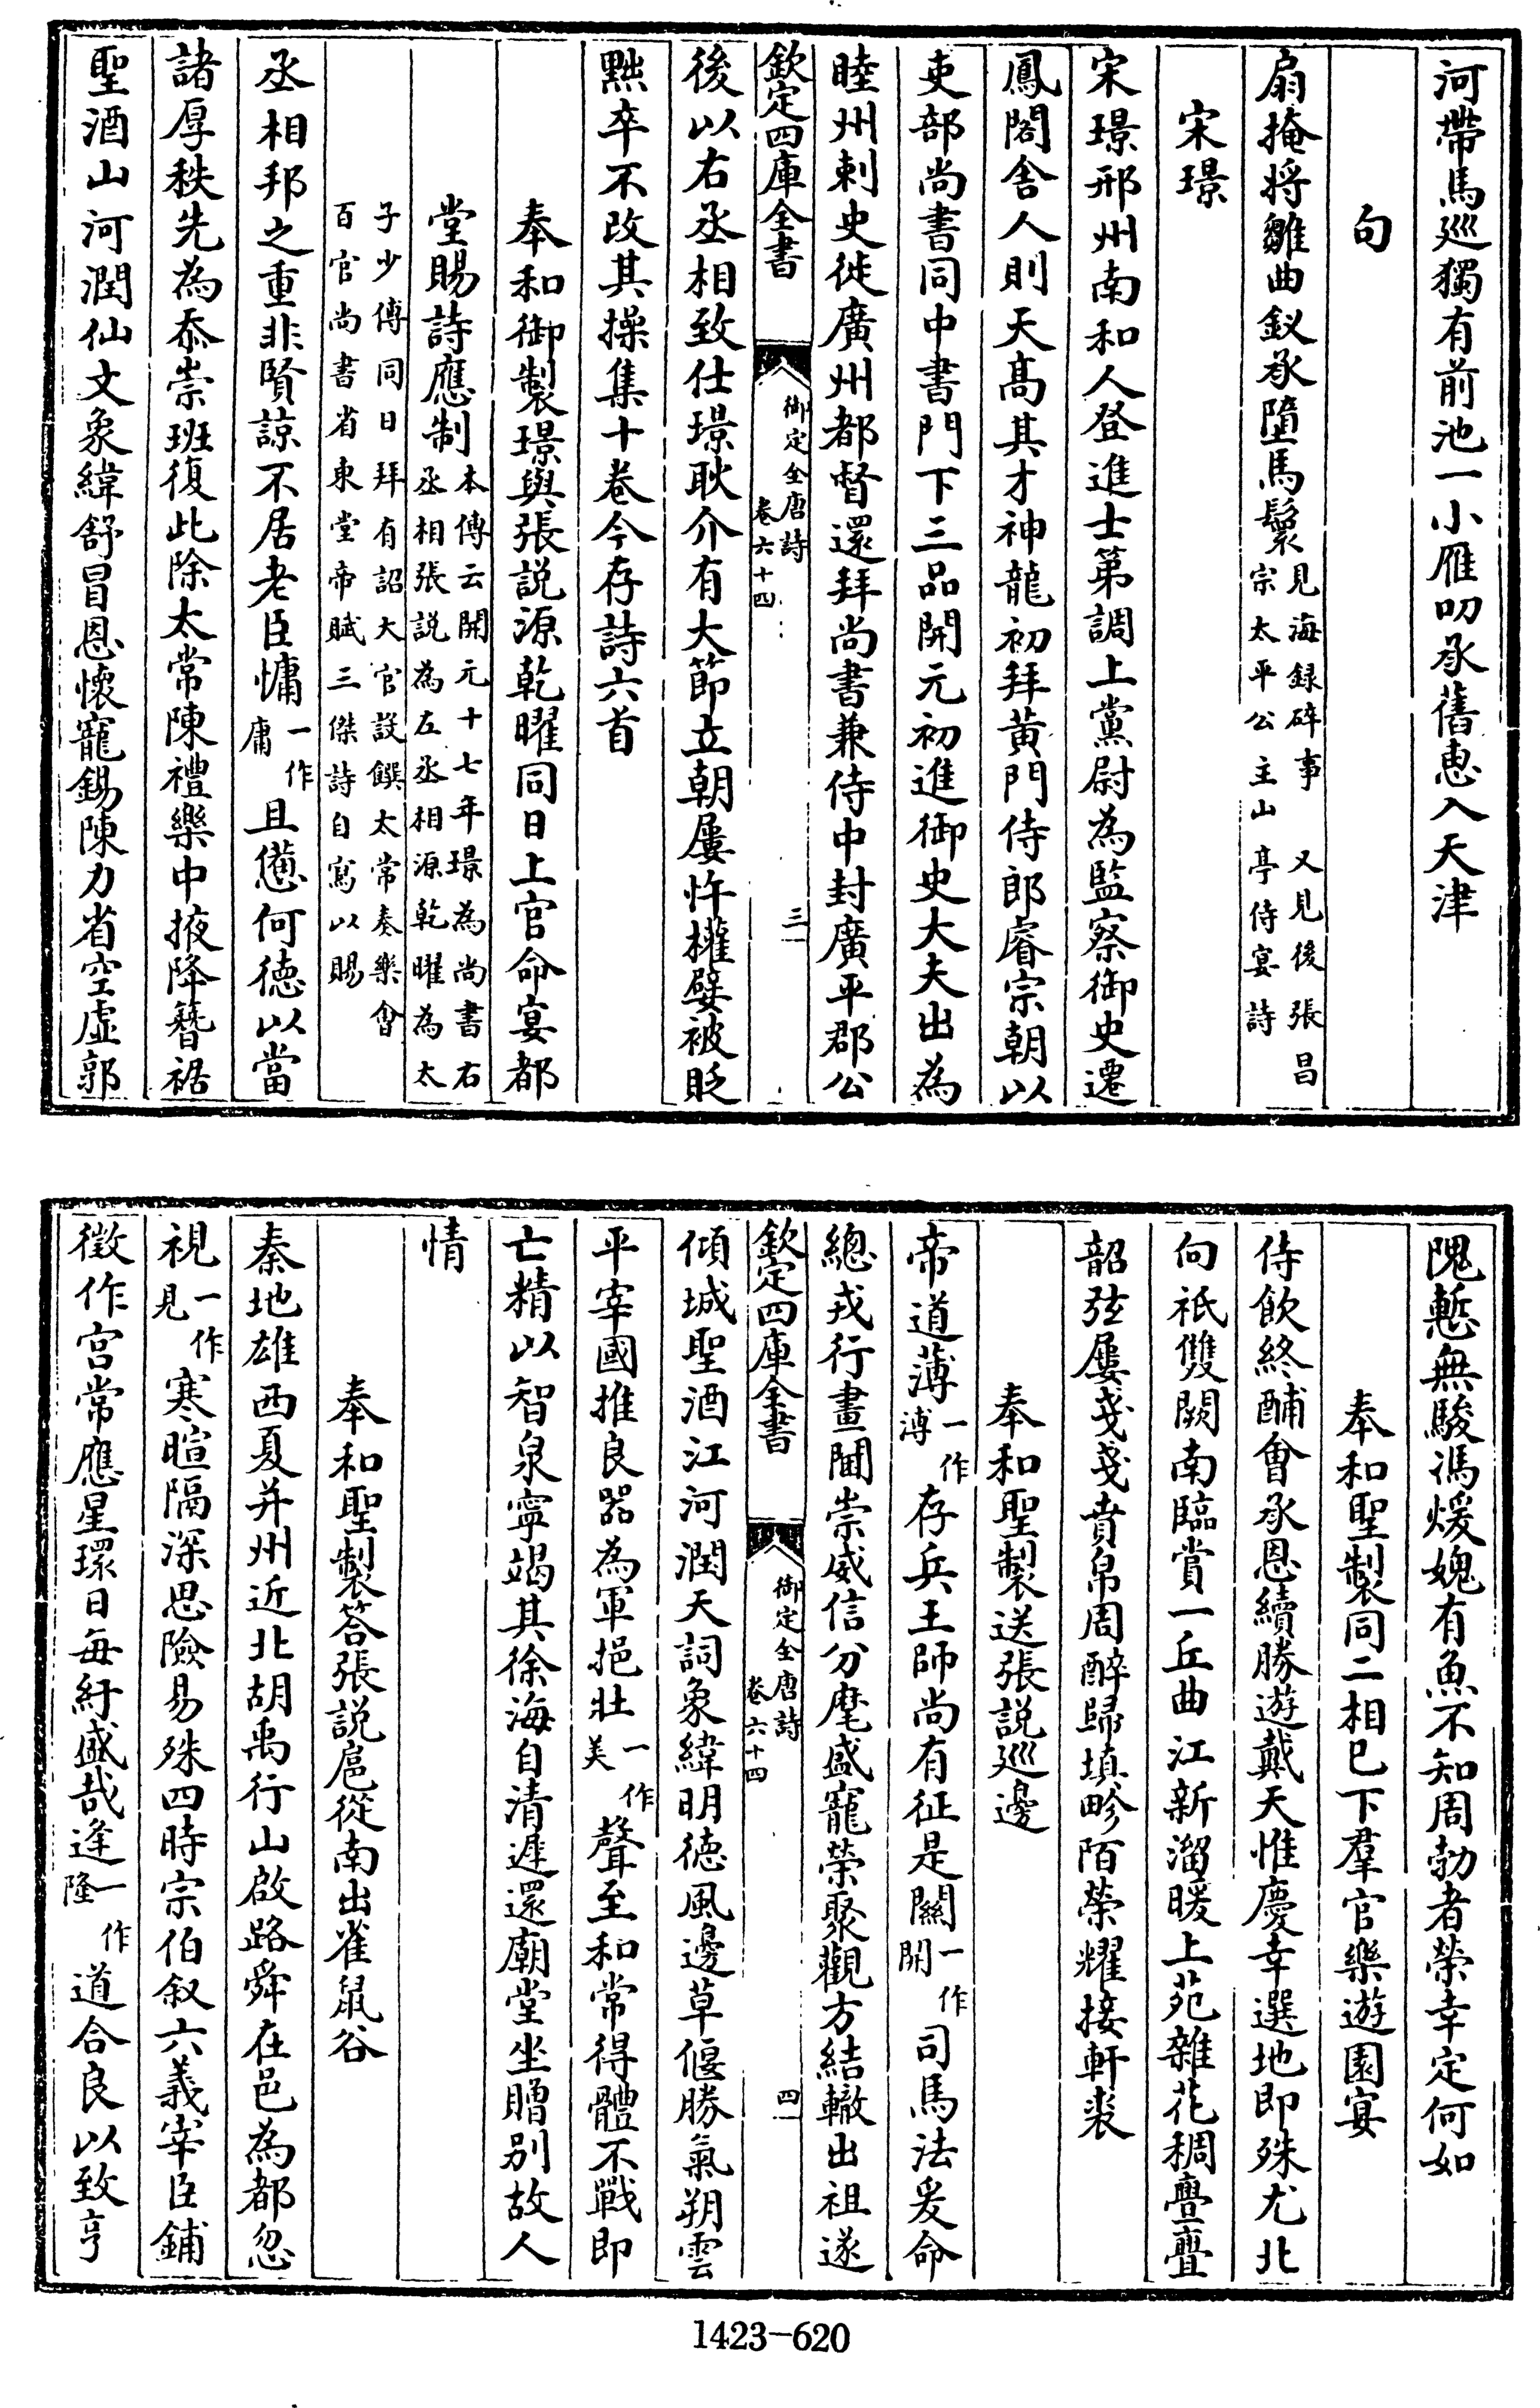 河帶馬巡獨有前池一小雁叨承舊恵入天津
句
扇掩將雛曲釵承墮馬鬟見海録碎事 又見後張昌
宗太平公主山亭侍宴詩
宋璟
宋璟邢州南和人登進士第調上黨尉為監察御史遷
鳳閣舍人則天髙其才神龍初拜黄門侍郎睿宗朝以
吏部尚書同中書門下三品開元初進御史大夫出為
睦州刺史徙廣州都督還拜尚書兼侍中封廣平郡公
欽定四庫全書 御定全唐詩 卷六十四 三
後以右丞相致仕璟耿介有大節立朝屢忤權嬖被貶
黜卒不改其操集十巻今存詩六首
奉和御製璟與張説源乾曜同日上官命宴都
堂賜詩應制本傳云開元十七年璟為尚書右
丞相張説為左丞相源乾曜為太
子少傅同日拜有詔大官設饌太常奏樂會
百官尚書省東堂帝賦三傑詩自寫以賜
丞相邦之重非賢諒不居老臣慵一作庸且憊何徳以當
諸厚秩先為忝崇班復此除太常陳禮樂中掖降簪裾
聖酒山河潤仙文象緯舒冒恩懷寵錫陳力省空虚郭
隗慙無駿馮煖媿有魚不知周勃者榮幸定何如
奉和聖製同二相已下羣官樂遊園宴
侍飲終酺會承恩續勝遊戴天惟慶幸選地即殊尤北
向祇雙闕南臨賞一丘曲江新溜暖上苑雜花稠亹亹
韶弦屢戔戔賁帛周醉歸填畛陌榮耀接軒裘
奉和聖製送張説巡邊
帝道薄一作溥存兵王師尚有征是關一作開司馬法爰命
總戎行畫閫崇威信分麾盛寵榮聚觀方結轍出祖遂
欽定四庫全書 御定全唐詩 卷六十四 四
傾城聖酒江河潤天詞象緯明徳風邊草偃勝氣朔雲
平宰國推良器為軍挹壯一作美聲至和常得體不戰即
亡精以智泉寧竭其徐海自清遲還廟堂坐贈别故人
情
奉和聖製答張説扈從南出雀鼠谷
秦地雄西夏并州近北胡禹行山啟路舜在邑為都忽
視一作見寒暄隔深思險易殊四時宗伯叙六義宰臣鋪
徵作宫常應星環日每紆盛哉逢一作隆道合良以致亨
1423-620